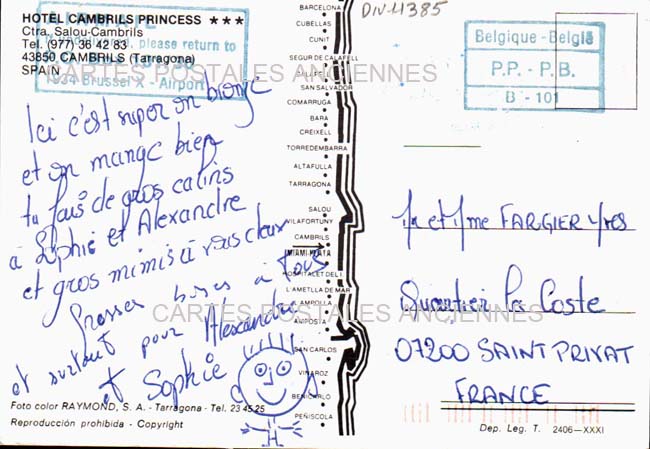 HOTEL CAMBRILS PRINCESS ★★★
Ctra. Salou-Cambrils
Tel. (977) 36 42 83
43850 CAMBRILS (Tarragona)
SPAIN
please return to
1934 Brussel X - Airport
DIV-4385
Belgique - België
P.P. - P.B.
B - 101
CARTES POSTALES ANCIENNES
Ici c'est super on bronze
et on mange bien
tu fais de gros calins
à Sophie et Alexandre
et gros mimis à vous deux
Grosses bises à Tous
et surtout pour Alexandre
et Sophie
BARCELONA
CUBELLAS
CUNIT
SEGUR DE CALAFELL
SAN SALVADOR
COMARRUGA
BARA
CREIXELL
TORREDEMBARRA
ALTAFULLA
TARRAGONA
SALOU
VILAFORTUNY
CAMBRILS
MIAMI PLAYA
HOSPITALET DEL I.
L AMETLLA DE MAR
L AMPOLLA
AMPOSTA
SAN CARLOS
VINAROZ
BENICARLO
PEÑISCOLA
Mr et Mme FARGIER Yves
Quartier La Coste
07200 SAINT PRIVAT
FRANCE
CARTES POSTALES ANCIENNES
Foto color RAYMOND, S. A. - Tarragona - Tel. 23 45 25
Reproducción prohibida - Copyright
Dep. Leg. T. 2406-XXXI